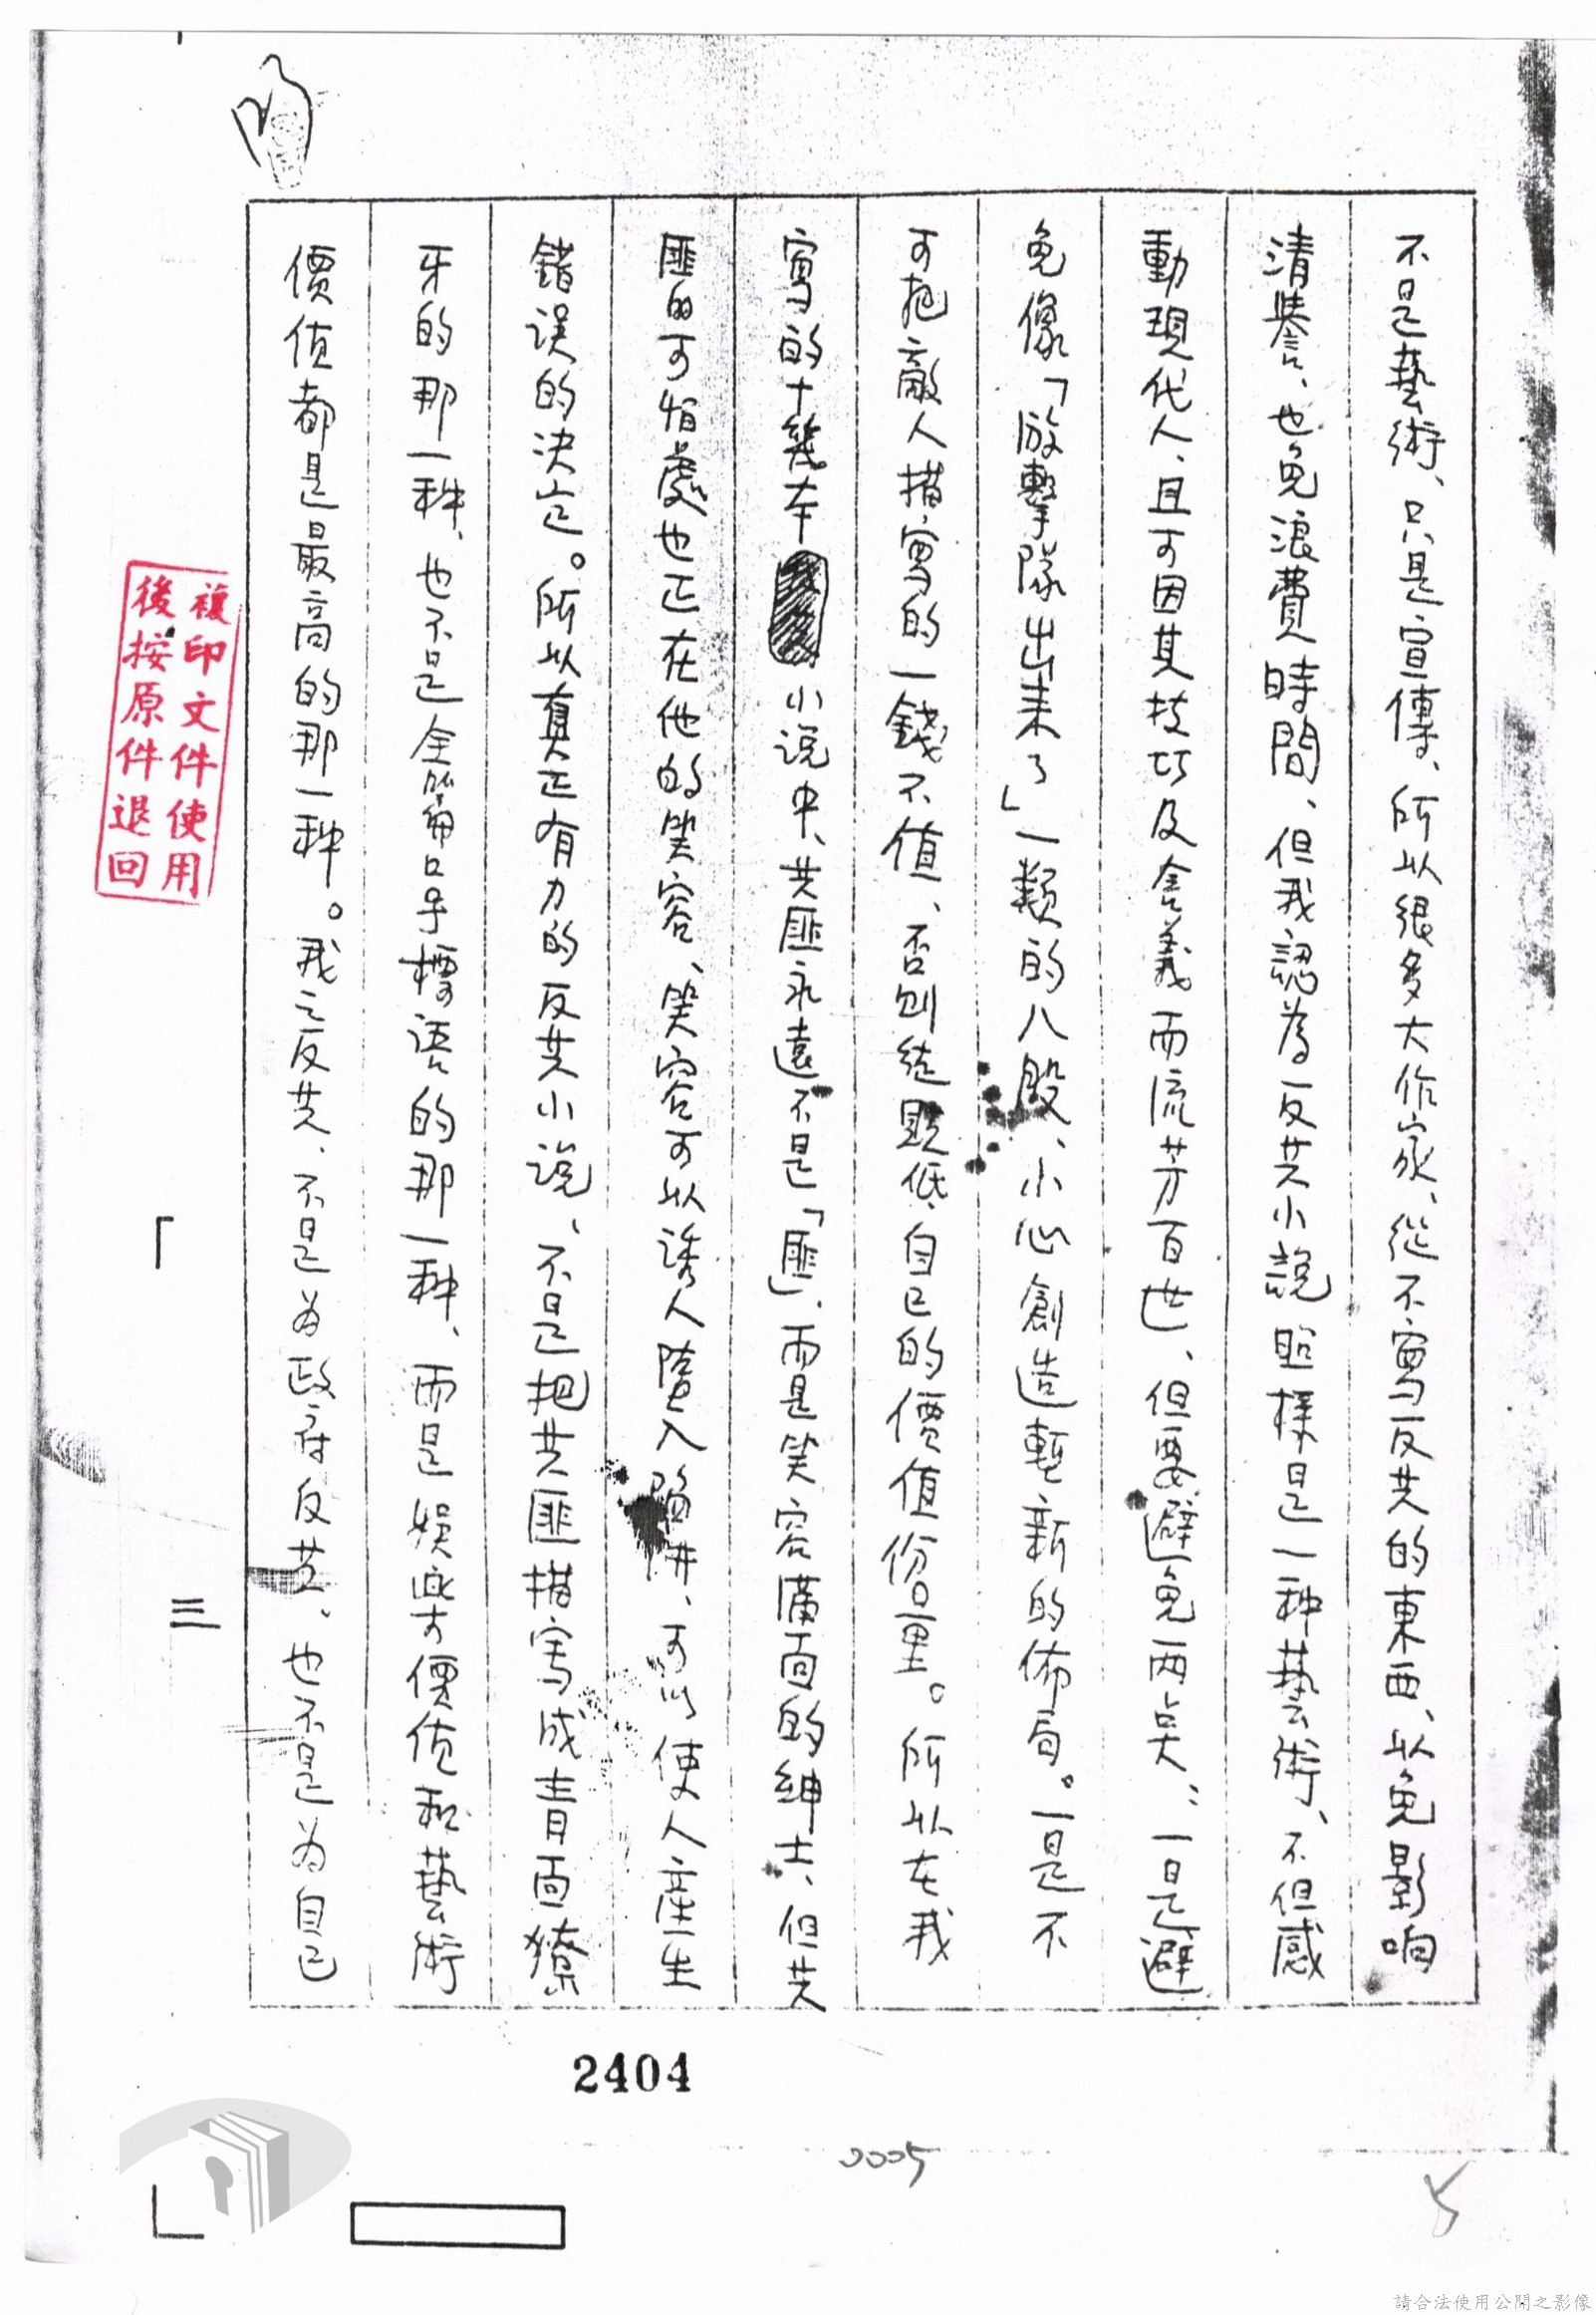 不是藝術、只是宣傳、所以很多大作家、從不寫反共的東西、以免影响
清譽、也免浪費時間、但我認為反共小說照樣是一种藝術、不但感
動現代人、且可因其技巧及含義而流芳百世、但要避免兩点：一是避
免像「游擊隊出来了」一類的八股、小心創造嶄新的佈局。一是不
可把敵人描寫的一錢不值、否則徒貶低自己的價值份量。所以在我
寫的十幾本小说中、共匪永遠不是「匪」、而是笑容满面的紳士、但共
匪的可怕處也正在他的笑容、笑容可以誘人墮入陷井、可以使人產生
錯误的决定。所以真正有力的反共小说、不是把共匪描寫成青面獠
牙的那一种、也不是全篇口号標语的那一种、而是娛樂價值和藝術
價值都是最高的那一种。我之反共、不是为政府反共、也不是为自己
複印文件使用
後按原件退回
三
2404
0005
5
請合法使用公開之影像